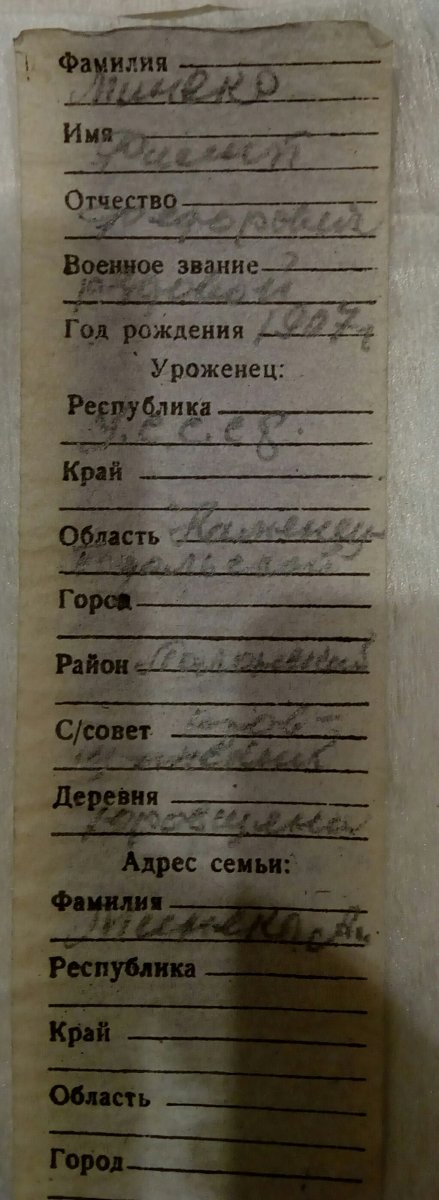 Фамилия
Минеко
Имя Филип
Отчество
Федорович
Военное звание
рядовой
Год рождения 1907 г
Уроженец:
Республика
У.С.С.С.Р.
Край
Область Каменец-
Подольской
Город
Район
С/совет
Деревня
Адрес семьи:
Фамилия
Минеко
Республика
Край
Область
Город